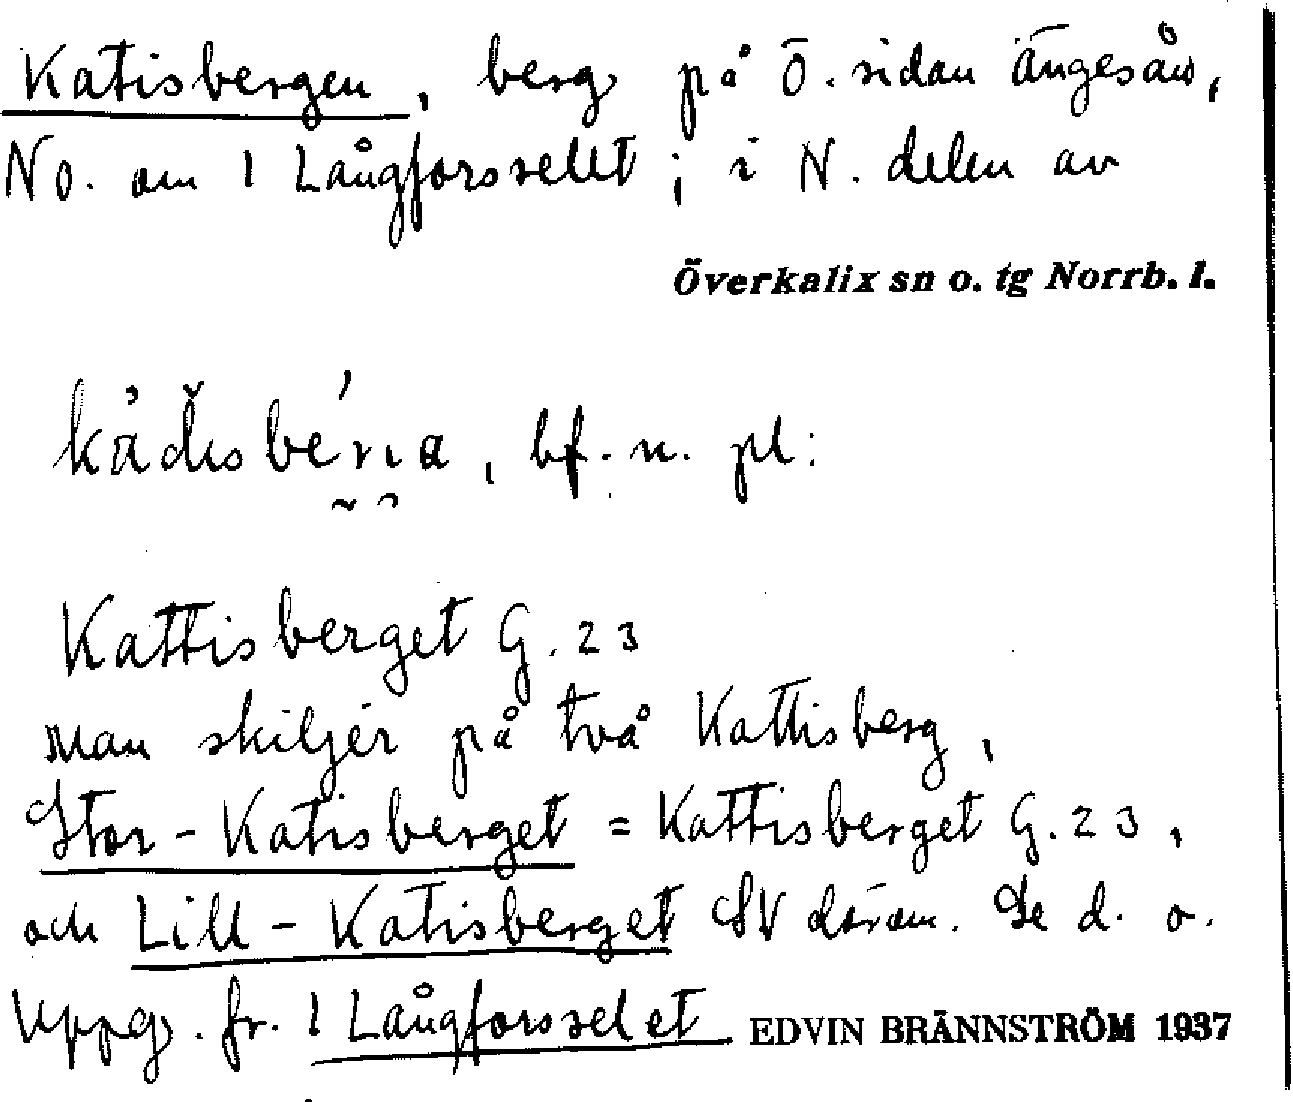 Katisbergen, berg på Ö. sidan Ängesån,
NO. om 1 Långforsselet; i N. delen av
Överkalix sn o. tg Norrb. l.
bf. n. pl:
Kattisberget G. 23
man skiljer på två Kattisberg,
Stor-Katisberget = Kattisberget G. 23,
och Lill-Katisberget SV därom. Se d. o.
Uppg. fr. 1 Långforsselet EDVIN BRÄNNSTRÖM 1937